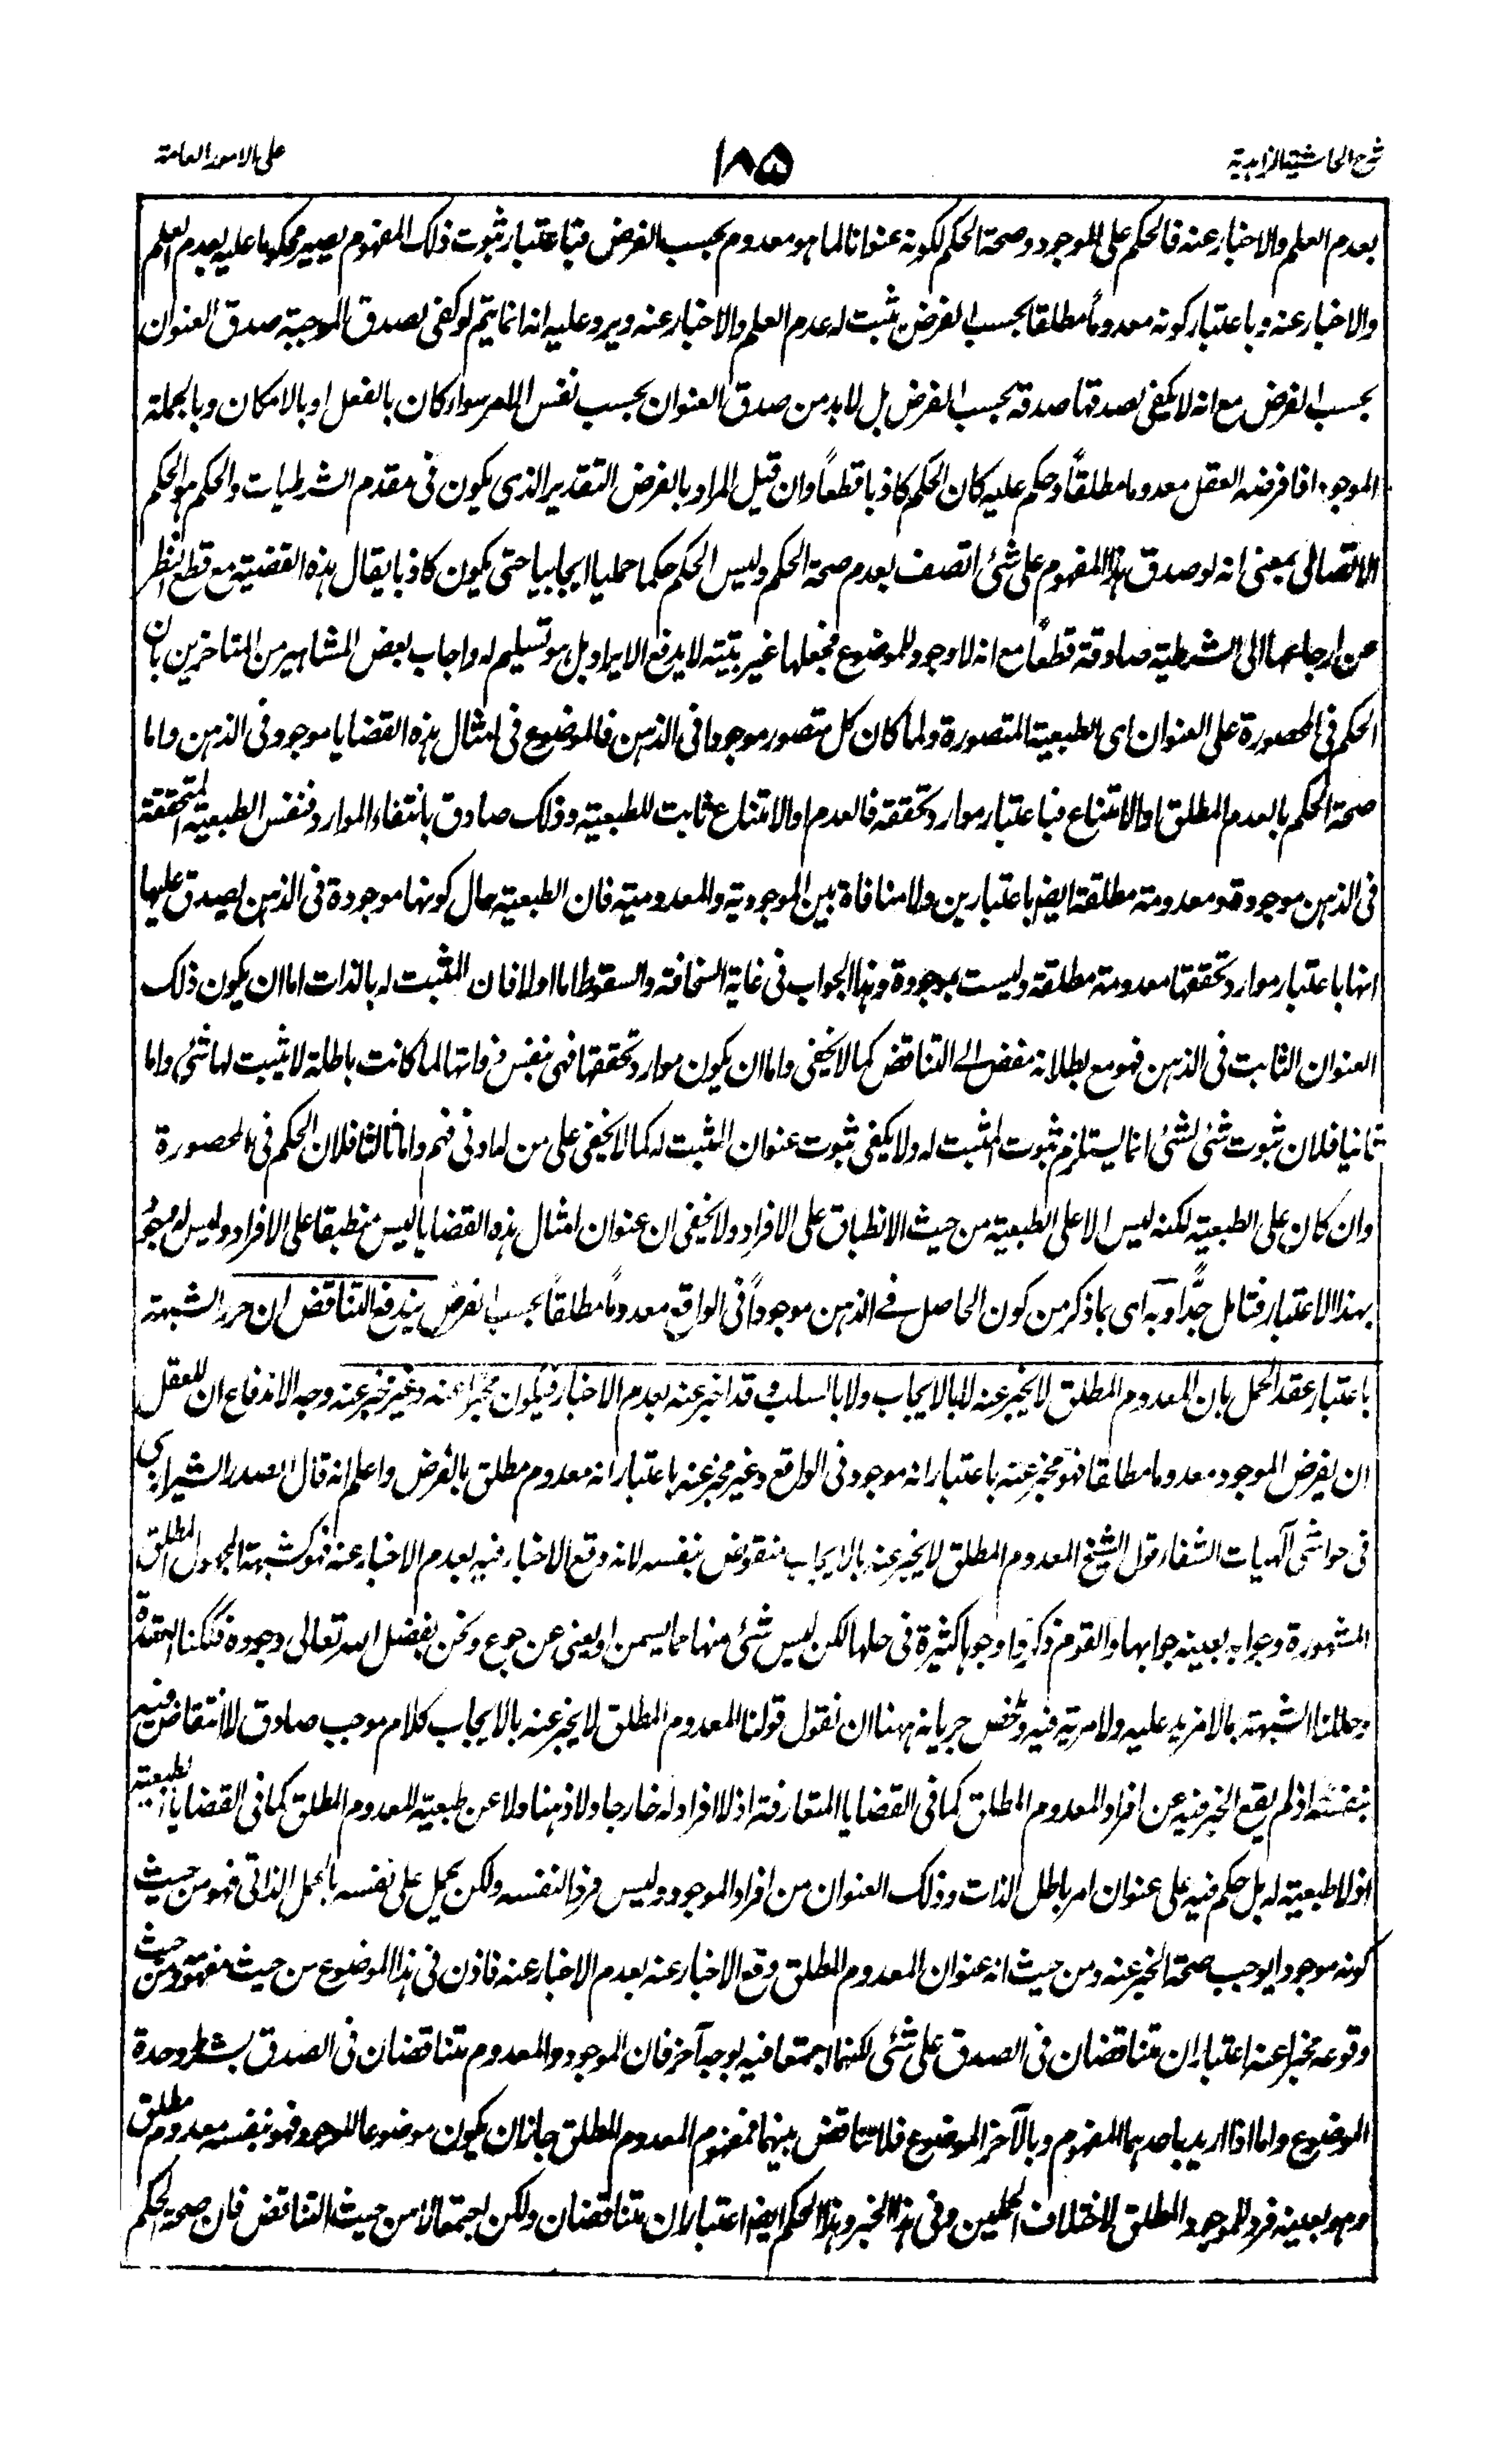 شرح الحاشية الزاهدية
١٨٥
على الامور العامة
بعدم العلم والاخبار عنه فالحكم على الموجود وصحة الحكم لكونه عنوانا لما هو معدوم بحسب الفرض فباعتبار ثبوت ذلك المفهوم يصير محكوما عليه بعدم العلم
والاخبار عنه وباعتبار كونه معدوماً مطلقا بحسب الفرض يثبت له عدم العلم والاخبار عنه ويرد عليه انه انما يتم لو كفى لصدق الموجبة صدق العنوان
بحسب الفرض مع انه لا يكفى لصدقها صدقه بحسب الفرض بل لابد من صدق العنوان بحسب نفس الامر سواء كان بالفعل او بالامكان وبالجملة
الموجود اذا فرضه العقل معدوما مطلقاً وحكم عليه كان الحكم كاذبا قطعاً وان قيل المراد بالفرض التقدير الذى يكون فى مقدم الشرطيات والحكم هو الحكم
الاتصالى بمعنى انه لو صدق هذا المفهوم على شئ اتصف بعدم صحة الحكم وليس الحكم حكما حمليا ايجابيا حتى يكون كاذبا يقال هذه القضية مع قطع النظر
عن ارجاعها الى الشرطية صادقة قطعاً مع انه لا وجود للموضوع فجعلها غير بتية لا يدفع الايراد بل هو تسليم له واجاب بعض المشاهير من المتاخرين بان
الحكم فى المحصورة على العنوان اى الطبعية المتصورة ولما كان كل متصور موجودا فى الذهن فالموضوع فى امثال هذه القضايا موجود فى الذهن واما
صحة الحكم بالعدم المطلق او الامتناع فباعتبار موارد تحققه فالعدم او الامتناع ثابت للطبعية وذلك صادق بانتفاء الموارد فنفس الطبعية المتحققة
فى الذهن موجودة ومعدومة مطلقة ايضا باعتبارين ولا منافاة بين الموجودية والمعدومية فان الطبعية حال كونها موجودة فى الذهن يصدق عليها
انها باعتبار موارد تحققها معدومة مطلقة وليست بموجودة وهذا الجواب فى غاية السخافة والسقوط اما اولا فان المثبت له بالذات اما ان يكون ذلك
العنوان الثابت فى الذهن فهو مع بطلانه مفض الے التناقض كما لا يخفى واما ان يكون موارد تحققها فهى بنفس ذاتها لما كانت باطلة لا يثبت لها شئ واما
ثانيا فلان ثبوت شئ لشئ انما يستلزم ثبوت المثبت له ولا يكفى ثبوت عنوان المثبت له كما لا يخفى على من له ادنى فهم واما ثالثا فلان الحكم فى المحصورة
وان كان على الطبعية لكنه ليس الا على الطبعية من حيث الانطباق على الافراد ولا يخفى ان عنوان امثال هذه القضايا ليس منطبقا على الافراد وليس له وجود
بهذا الاعتبار فتامل جدًّا وبه اى بما ذكر من كون الحاصل فے الذهن موجوداً فى الواقع معدوماً مطلقاً بحسب الفرض يندفع التناقض ان حرر الشبهة
باعتبار عقد الحمل بان المعدوم المطلق لا يخبر عنه لا بالايجاب ولا بالسلب وقد اخبر عنه بعدم الاخبار فيكون مخبرا عنه وغير مخبر عنه وجه الاندفاع ان للعقل
ان يفرض الموجود معدوما مطلقا فهو مخبر عنه باعتبار انه موجود فى الواقع وغير مخبر عنه باعتبار انه معدوم مطلق بالفرض واعلم انه قال الصدر الشيرازى
فى حواشى الٓهيات الشفاء قول الشيخ المعدوم المطلق لا يخبر عنه بالايجاب منقوض بنفسه لانه وقع الاخبار فيه بعدم الاخبار عنه فهو كشبهة المجهول المطلق
المشهورة وجوابه بعينه جوابها والقوم ذكروا وجوها كثيرة فى حلها لكن ليس شئ منها مما يسمن او يغنى عن جوع ونحن بفضل الله تعالى وجوده فككنا العقدة
وحللنا الشبهة بما لا مزيد عليه ولا مرية فيه وتلخص جريانه ههنا ان نقول قولنا المعدوم المطلق لا يخبر عنه بالايجاب كلام موجب صادق لا انتقاض فيه
بنفسه اذ لم يقع الخبر فيه عن افراد المعدوم المطلق كما فى القضايا المتعارفة اذ لا افراد له خارجا ولا ذهنا ولا عن طبعية المعدوم المطلق كما فى القضايا الطبعية
اذ لا طبعية له بل حكم فيه على عنوان امر باطل الذات وذلك العنوان من افراد الموجود وليس فردا لنفسه ولكن يحمل على نفسه بالحمل الذاتى فهو من حيث
كونه موجودا يوجب صحة الخبر عنه ومن حيث انه عنوان المعدوم المطلق وقع الاخبار عنه بعدم الاخبار عنه فاذن فى هذا الموضوع من حيث مفهومه ومن حيث
وقوعه مخبرا عنه اعتباران متناقضان فى الصدق على شئ لكنهما اجتمعا فيه بوجه آخر فان الموجود والمعدوم متناقضان فى الصدق بشرط وحدة
الموضوع واما اذا اريد باحدهما المفهوم وبالآخر الموضوع فلا تناقض بينهما فمفهوم المعدوم المطلق جاز ان يكون موضوعا للوجود فهو بنفسه معدوم مطلق
وهو بعينه فرد للموجود المطلق لاختلاف الحملين وفى هذا الخبر وهذا الحكم ايضا اعتباران متناقضان ولكن اجتمعا لا من حيث التناقض فان صحة الحكم